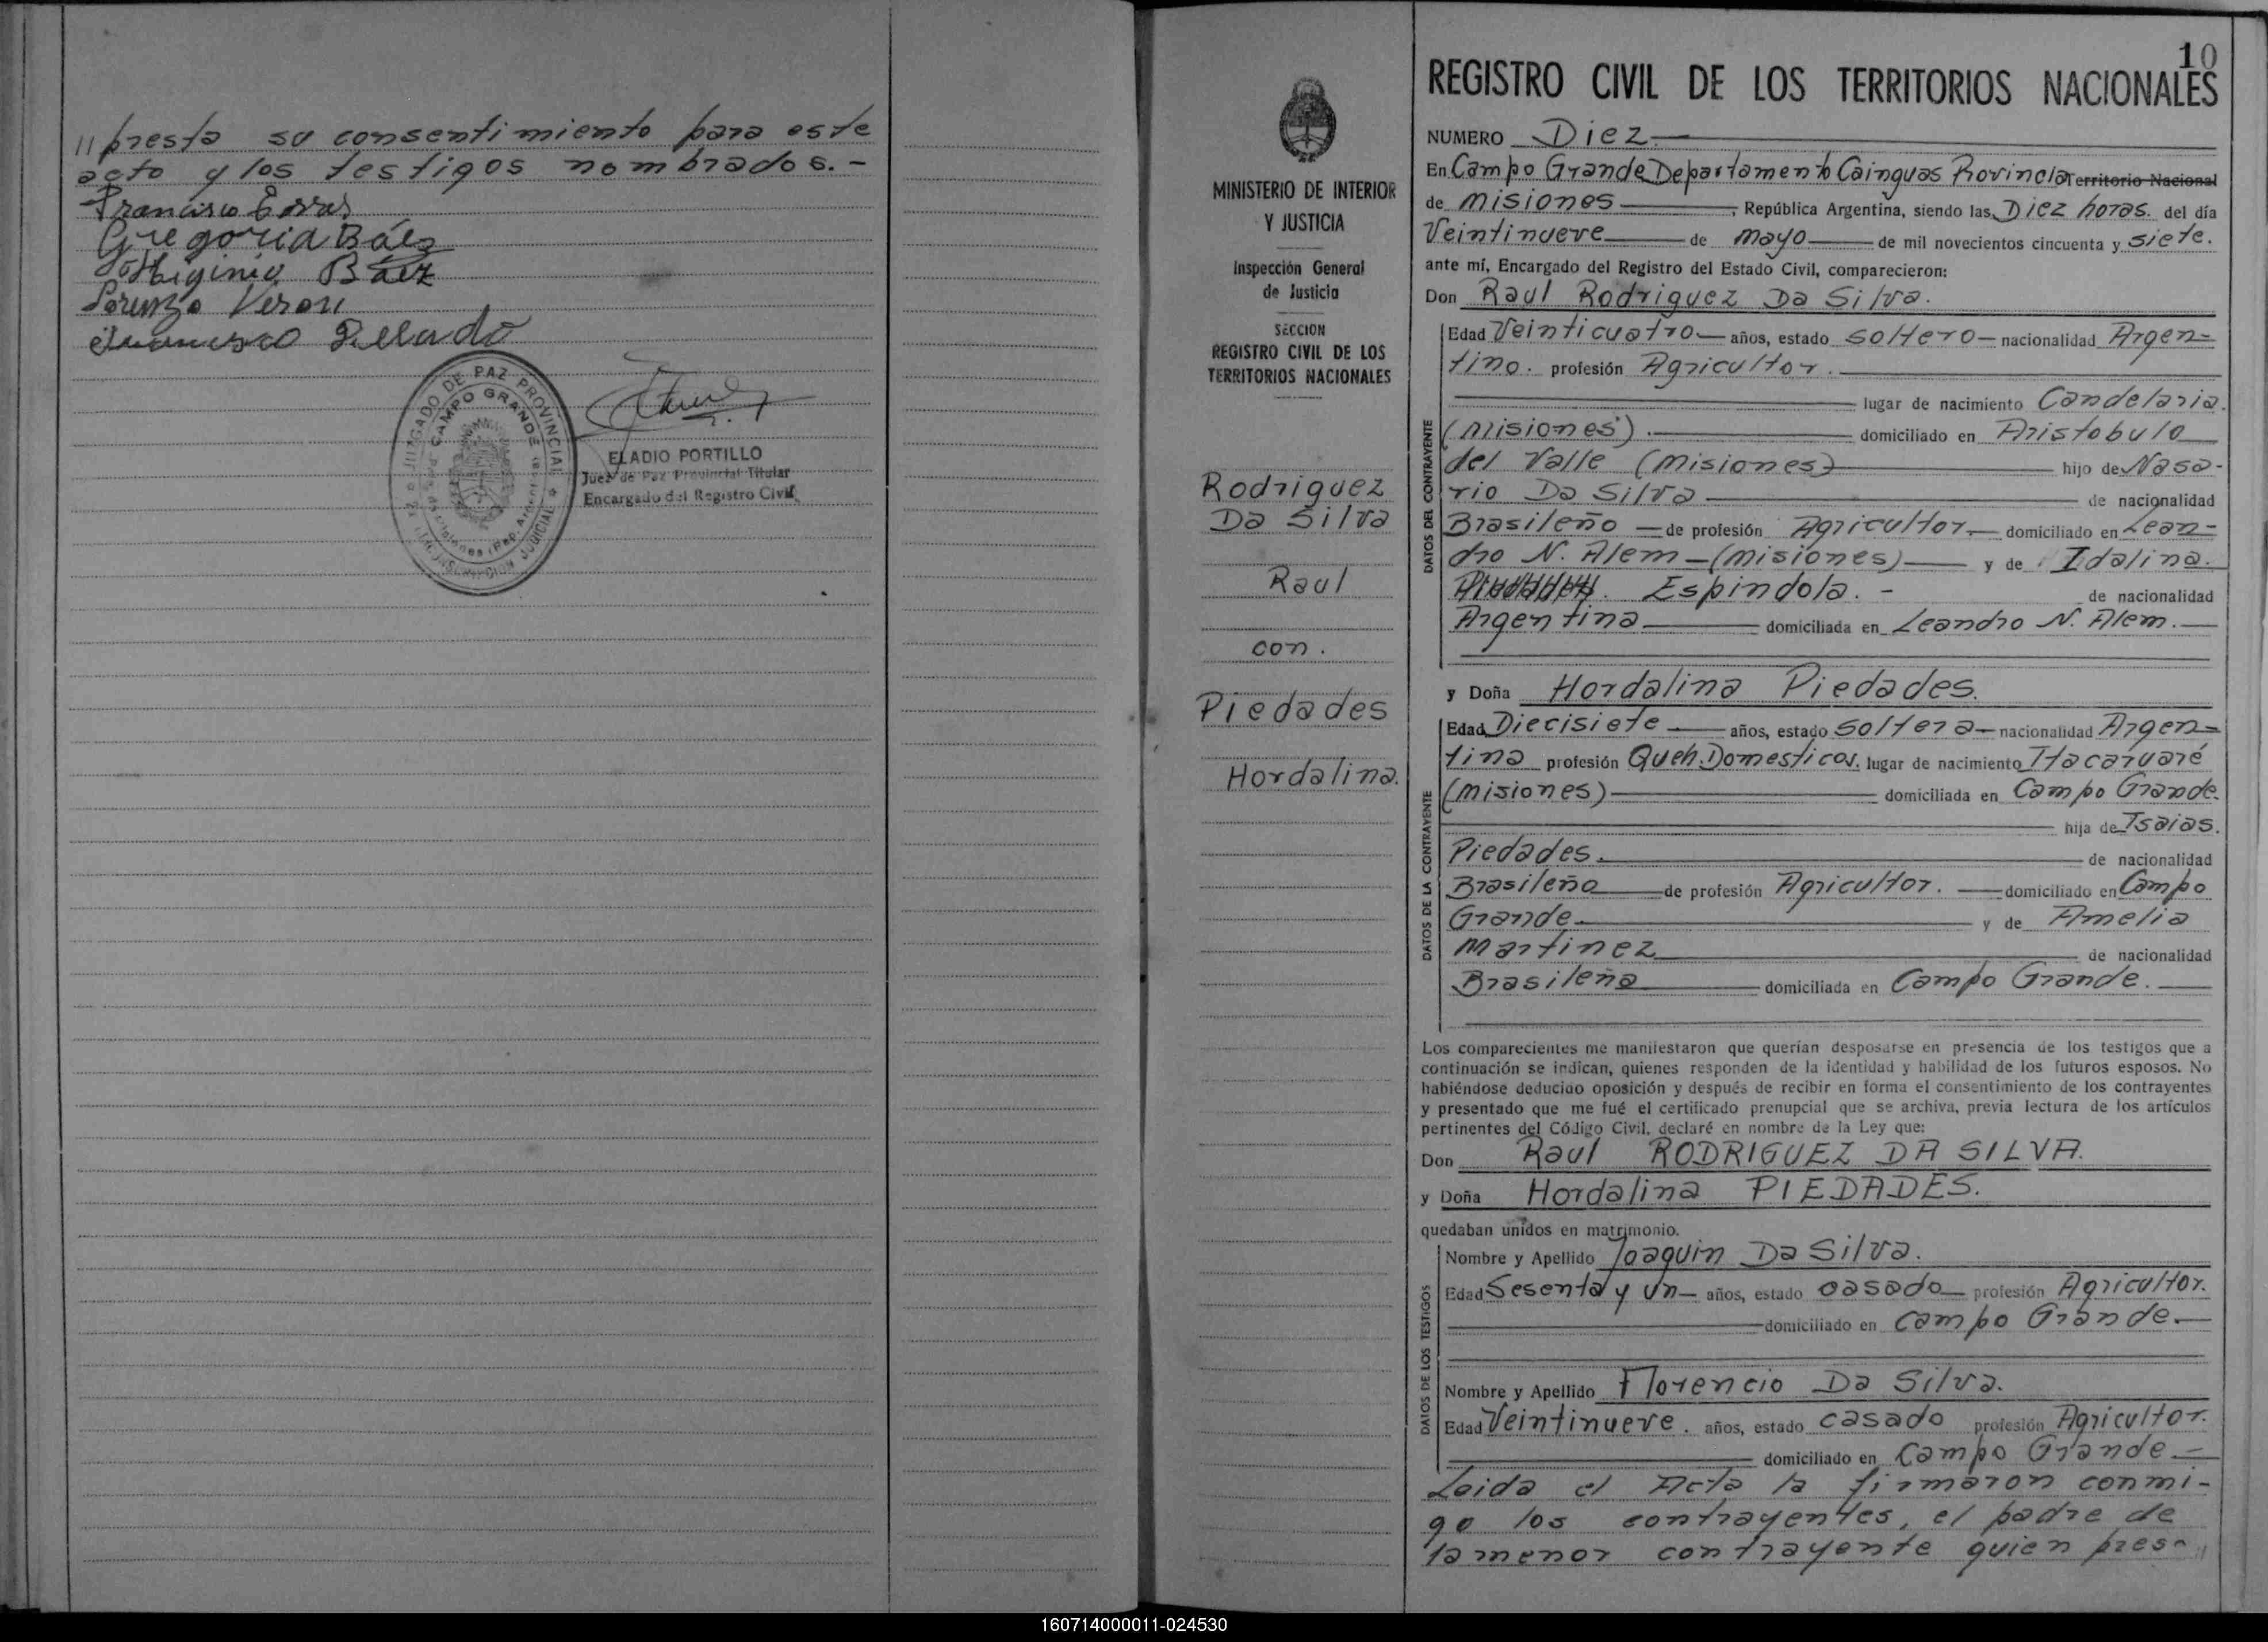 11 presta su consentimiento para este
acto y los testigos nombrados.-
Francisco
Gregoria Báez
Higinio Báez
Lorenzo Veron
Francisco
JUZGADO DE PAZ PROVINCIAL
CAMPO GRANDE
JUDICIAL
ELADIO PORTILLO
Juez de Paz Provincial Titular
Encargado del Registro Civil
MINISTERIO DE INTERIOR
Y JUSTICIA
Inspección General
de Justicia
SECCION
REGISTRO CIVIL DE LOS
TERRITORIOS NACIONALES
Rodriguez
Da Silva
Raul
con.
Piedades
Hordalina.
10
REGISTRO CIVIL DE LOS TERRITORIOS NACIONALES
NUMERO Diez
En Campo Grande Departamento Cainguas Provincia Territorio Nacional
de Misiones, República Argentina, siendo las Diez horas. del día
Veintinueve de mayo de mil novecientos cincuenta y siete.
ante mí, Encargado del Registro del Estado Civil, comparecieron:
Don Raul Rodriguez Da Silva.
DATOS DEL CONTRAYENTE
Edad Veinticuatro años, estado soltero nacionalidad Argen-
tino. profesión Agricultor.
lugar de nacimiento Candelaria.
(Misiones). domiciliado en Aristobulo
del Valle (Misiones) hijo de Nasa-
rio Da Silva de nacionalidad
Brasileño de profesión Agricultor. domiciliado en Lean-
dro N. Alem (Misiones) y de Idalina.
Espindola. - de nacionalidad
Argentina domiciliada en Leandro N. Alem.
y Doña Hordalina Piedades.
DATOS DE LA CONTRAYENTE
Edad Diecisiete años, estado soltera nacionalidad Argen-
tina profesión Queh. Domesticos. lugar de nacimiento Itacaruaré
(Misiones) domiciliada en Campo Grande.
hija de Isaias.
Piedades. de nacionalidad
Brasileño de profesión Agricultor. domiciliado en Campo
Grande. y de Amelia
Martinez de nacionalidad
Brasileña domiciliada en Campo Grande.
Los comparecientes me manifestaron que querían desposarse en presencia de los testigos que a
continuación se indican, quienes responden de la identidad y habilidad de los futuros esposos. No
habiéndose deducido oposición y después de recibir en forma el consentimiento de los contrayentes
y presentado que me fué el certificado prenupcial que se archiva, previa lectura de los artículos
pertinentes del Código Civil, declaré en nombre de la Ley que:
Don Raul RODRIGUEZ DA SILVA.
y Doña Hordalina PIEDADES.
quedaban unidos en matrimonio.
DATOS DE LOS TESTIGOS
Nombre y Apellido Joaquin Da Silva.
Edad Sesenta y un años, estado casado profesión Agricultor.
domiciliado en Campo Grande.
Nombre y Apellido Florencio Da Silva.
Edad Veintinueve. años, estado casado profesión Agricultor.
domiciliado en Campo Grande
Leida el Acta la firmaron conmi-
go los contrayentes, el padre de
la menor contrayente quien pres- 11
160714000011-024530